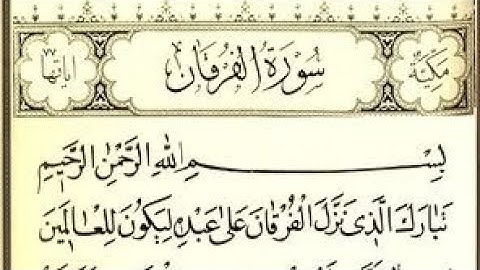 مكية سورة الفرقان اياتها ٧٧
بِسْمِ اللهِ الرَّحْمٰنِ الرَّحِيمِ
تَبَارَكَ الَّذِي نَزَّلَ الْفُرْقَانَ عَلٰى عَبْدِهِ لِيَكُونَ لِلْعَالَمِينَ